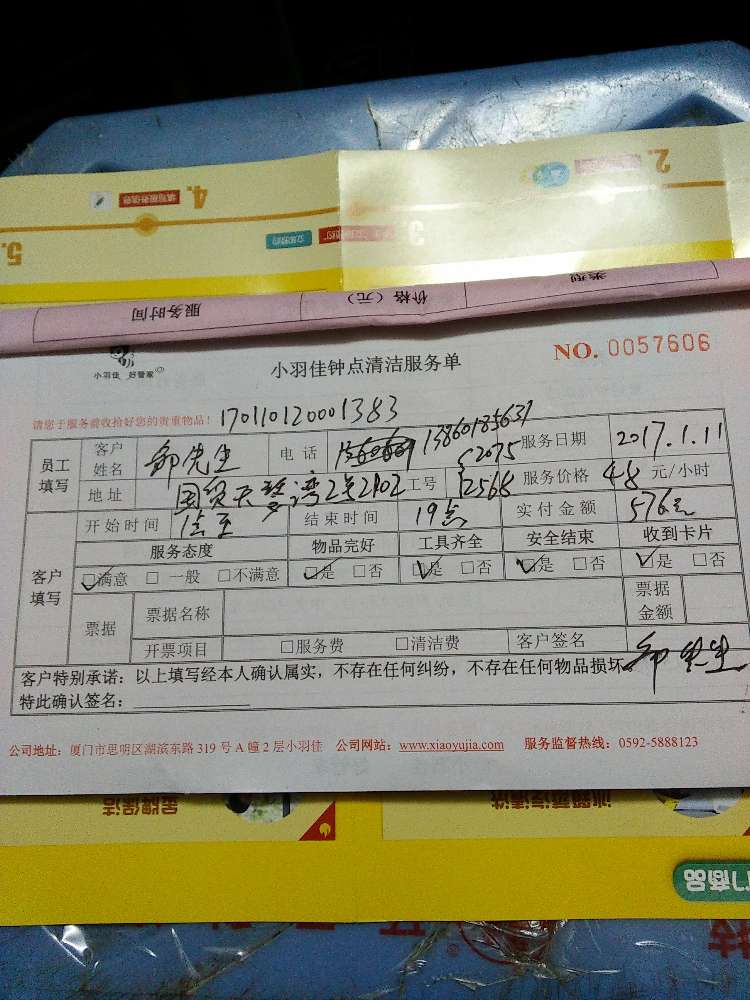 5.
4.
填写服务信息
立即预约
3
2.
服务时间
价格（元）
类型
小羽佳 好管家
小羽佳钟点清洁服务单
NO. 0057606
请您于服务前收拾好您的贵重物品！ 170110120001383
员工填写 客户姓名 邹先生 电话 13860185631 服务日期 2017.1.11
地址 国贸天琴湾2号2102 工号 2075 2568 服务价格 48 元/小时
客户填写 开始时间 结束时间 19点 实付金额 576元
服务态度 物品完好 工具齐全 安全结束 收到卡片
☑满意 □一般 □不满意 ☑是 □否 ☑是 □否 ☑是 □否 ☑是 □否
票据 票据名称 票据金额
开票项目 □服务费 □清洁费 客户签名 邹先生
客户特别承诺：以上填写经本人确认属实，不存在任何纠纷，不存在任何物品损坏。
特此确认签名：
公司地址：厦门市思明区湖滨东路 319 号 A 幢 2 层小羽佳 公司网站：www.xiaoyujia.com 服务监督热线：0592-5888123
金牌保洁
门商品